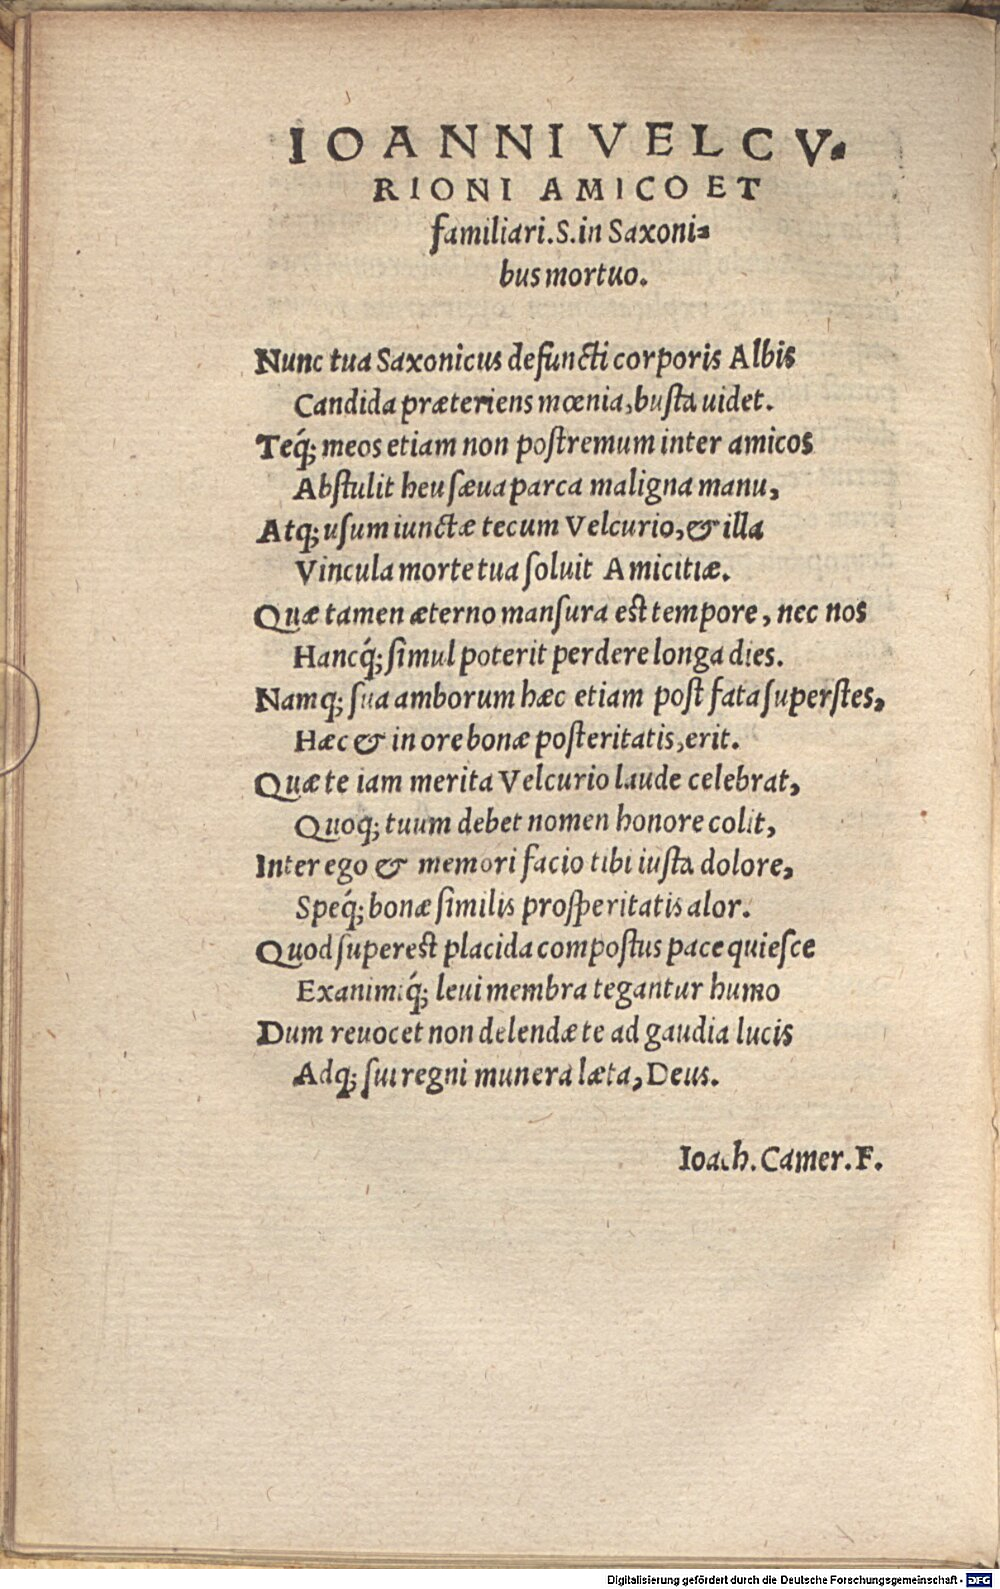 IOANNI VELCV-
RIONI AMICO ET
familiari. S. in Saxoni=
bus mortuo.
Nunc tua Saxonicus defuncti corporis Albis
Candida præteriens mœnia, busta uidet.
Teq́; meos etiam non postremum inter amicos
Abstulit heu sæua parca maligna manu,
Atq; usum iunctæ tecum Velcurio, & illa
Vincula morte tua soluit Amicitiæ.
Quæ tamen æterno mansura est tempore, nec nos
Hancq́; simul poterit perdere longa dies.
Namq; sua amborum hæc etiam post fata superstes,
Hæc & in ore bonæ posteritatis, erit.
Quæ te iam merita Velcurio laude celebrat,
Quoq; tuum debet nomen honore colit,
Inter ego & memori facio tibi iusta dolore,
Speq́; bonæ similis prosperitatis alor.
Quod superest placida compostus pace quiesce
Exanimiq́; leui membra tegantur humo
Dum reuocet non delendæ te ad gaudia lucis
Adq; sui regni munera læta, Deus.
Ioach. Camer. F.
Digitalisierung gefördert durch die Deutsche Forschungsgemeinschaft - DFG